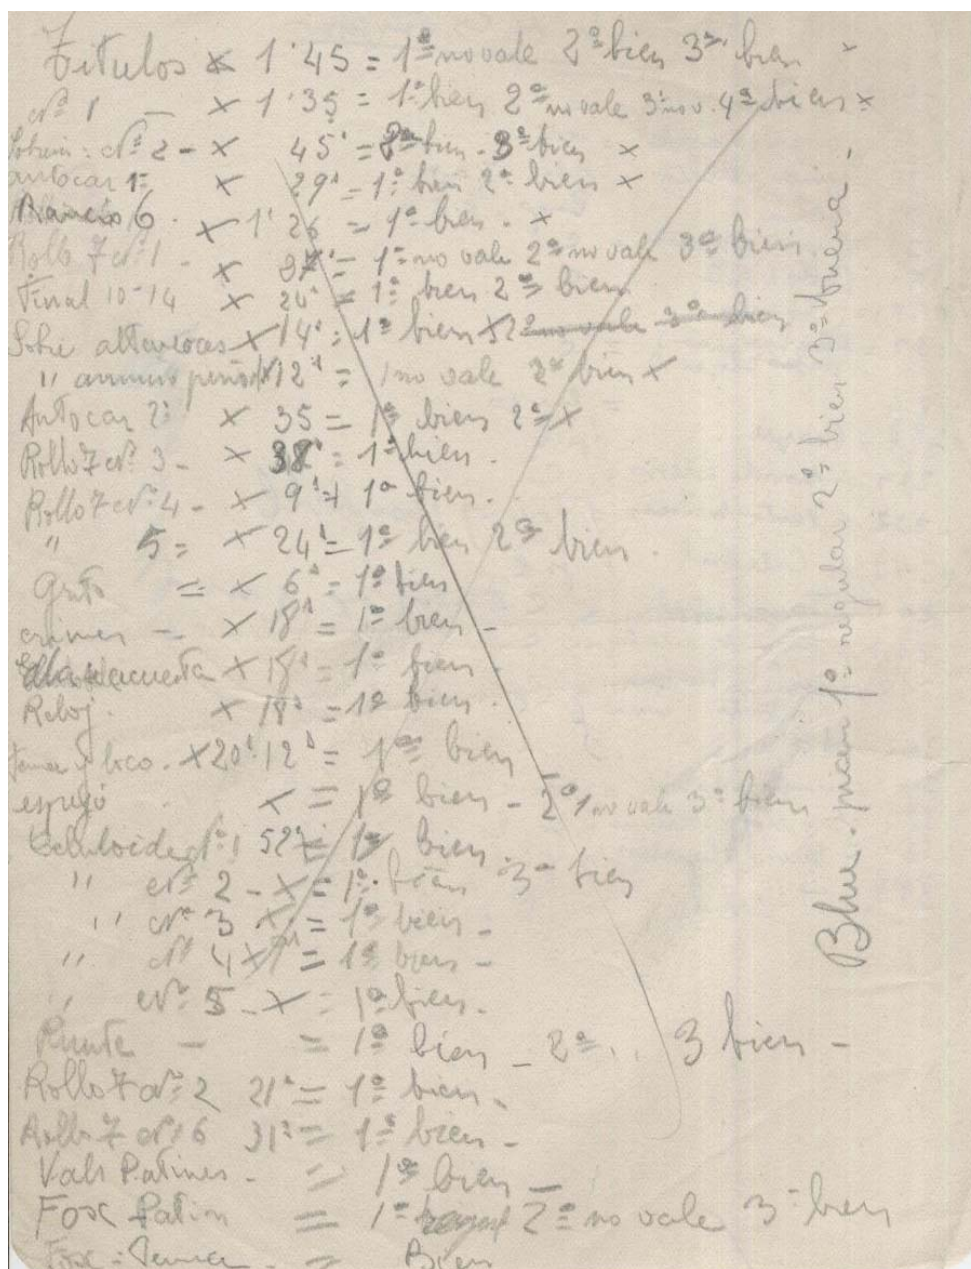 Titulos x 1'45 = 1ª no vale 2ª bien 3ª bien x
Nº 1 - x 1'35 = 1ª bien 2ª no vale 3ª no v. 4ª bien x
Nº 2 - x 45" = 2ª bien - 3ª bien x
autocar 1º x 29" = 1ª bien 2ª bien x
6. x 1' 26 = 1ª bien. x
Rollo 7 Nº 1 - x = 1ª no vale 2ª no vale 3ª bien
Final 10-14 x 20" = 1ª bien 2ª bien
Sobre x 14" = 1ª bien x 2ª no vale 3ª bien
" x 12" = 1 no vale 2ª bien x
Autocar 2º x 35 = 1ª bien 2ª x
Rollo 7 Nº 3 - x 38" = 1ª bien.
Rollo 7 Nº 4 - x 9" = 1ª bien.
" 5 = x 24" = 1ª bien 2ª bien.
Grito = x 6" = 1ª bien
crimen - x 18" = 1ª bien -
x 18" = 1ª bien -
Reloj. x 18" = 1ª bien.
x 20" 12" = 1ª bien
espejo x = 1ª bien - 2ª no vale 3ª bien
Celuloide Nº 1 52" = 1ª bien.
" Nº 2 - x = 1ª bien 3ª bien
" Nº 3 x = 1ª bien -
" Nº 4 x = 1ª bien -
" Nº 5 - x = 1ª bien.
- = 1ª bien - 2ª .. 3 bien -
Rollo 7 Nº 2 21" = 1ª bien.
Rollo 7 Nº 6 31" = 1ª bien -
Vals Patines - = 1ª bien -
Fox Patin = 1ª 2ª no vale 3ª bien
Fox = Bien
Blue. 1ª regular 2ª bien 3ª buena.